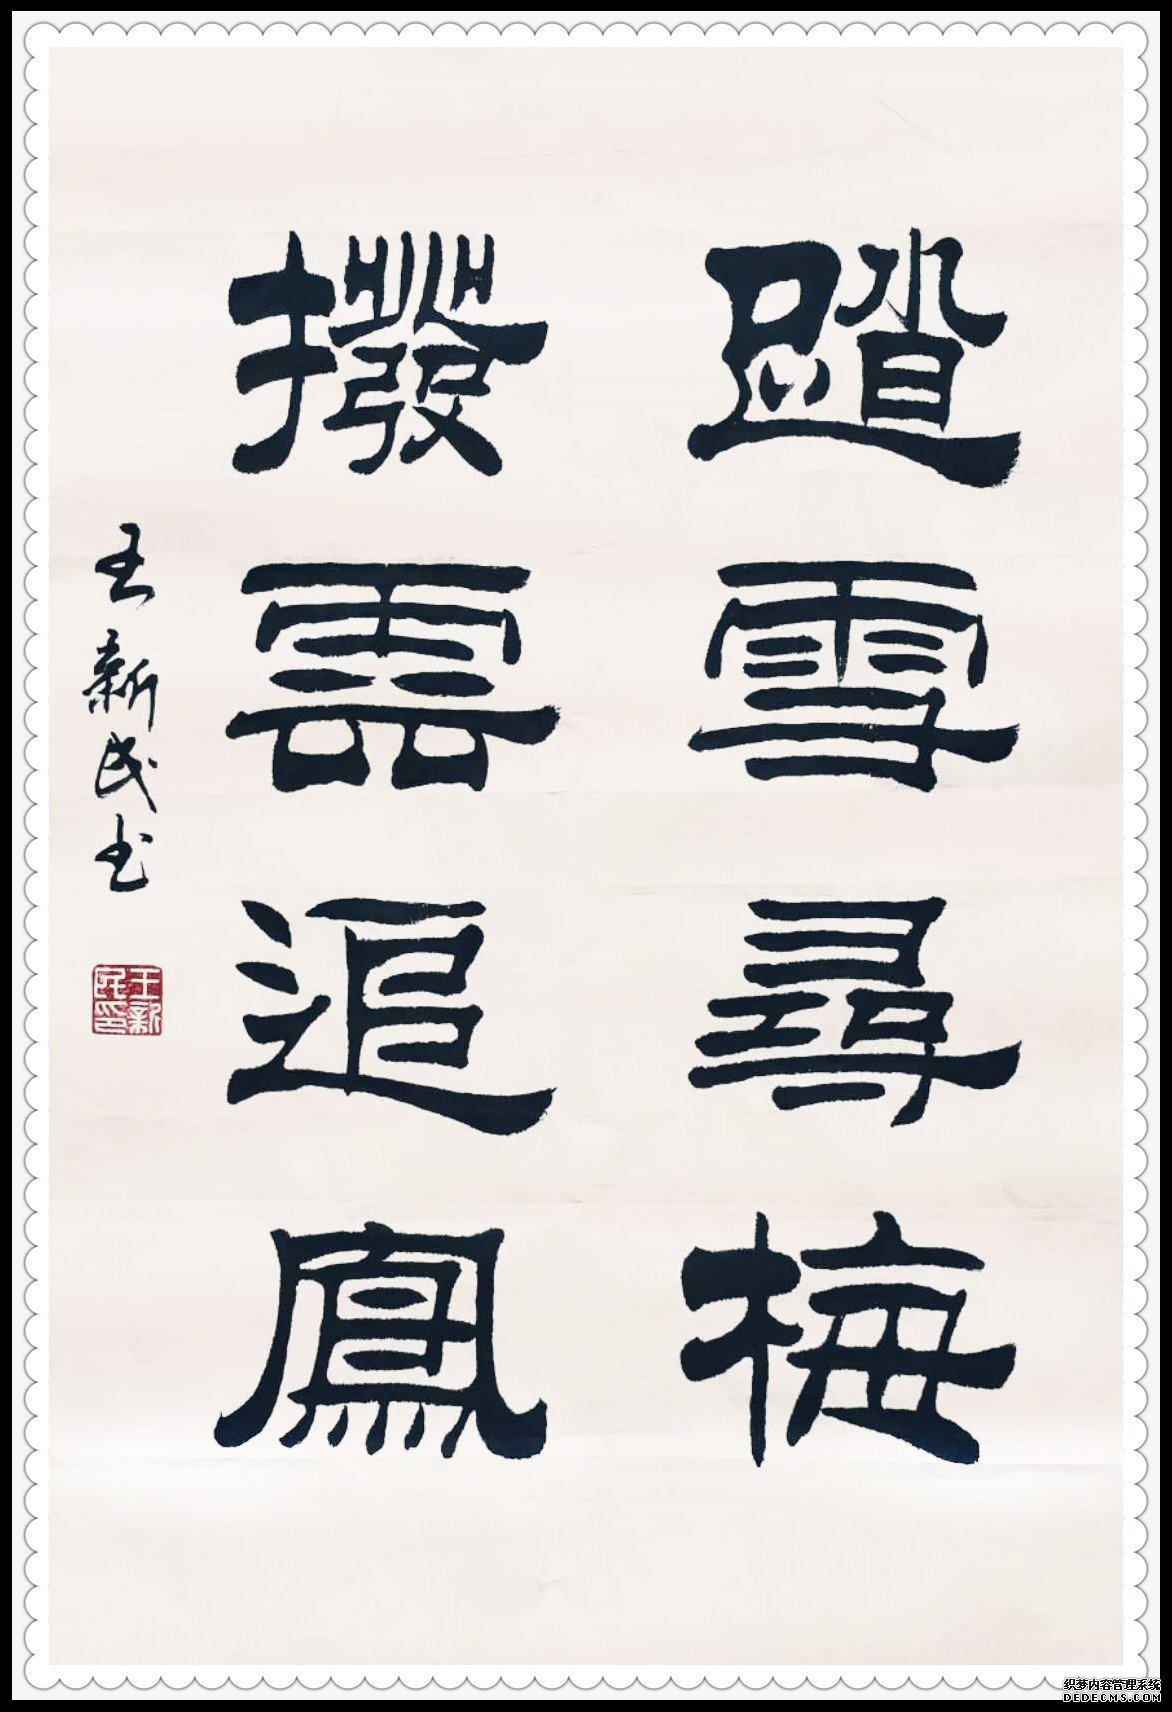 踏雪尋梅
撥雲追鳳
王新民书
王新民印
织梦内容管理系统
DEDECMS.COM